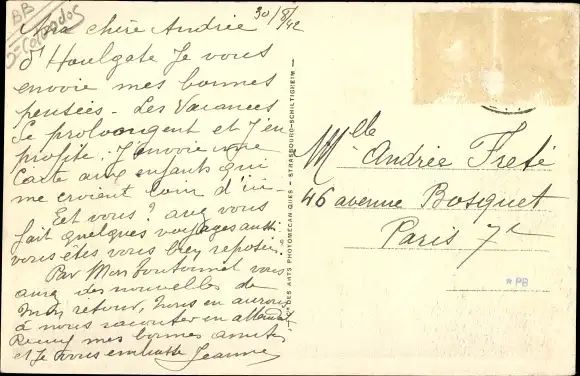 BB
Calvados
30/8/42
Ma chère Andrée
d'Houlgate je vous
envoie mes bonnes
pensées - Les vacances
se prolongent et j'en
profite. J'envoie une
carte aux enfants qui
me croient loin d'ici -
Et vous? avez vous
fait quelques voyages aussi
vous êtes vous bien reposée.
Par Mon vous
aurez des nouvelles de
mon retour, nous en aurons
à nous raconter en attendant
Recevez mes bonnes amitiés
et je vous embrasse Jeanne
DES ARTS PHOTOMÉCANIQUES - STRASBOURG-SCHILTIGHEIM -
Mlle Andrée Freté
46 avenue Bosquet
Paris 7e
* PB